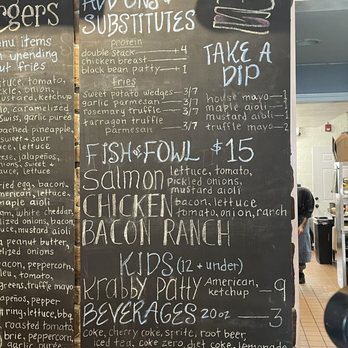 rgers
nu items
n upending
out fries
tuce, tomato,
ckle, onion,
ustard, ketchup
lo, caramelized
swiss, garlic pureé
oached pineapple,
sweet + sour
uce, lettuce
ese, jalapeños,
onions, sweet +
sauce, lettuce
ried egg, bacon,
american, lettuce,
maple aioli
am, white cheddar,
lized onions, bacon
uce, mustard aioli
, peanut butter,
elized onions
bacon, pepperoni,
leu, tomato,
greens, truffle mayo
apeños, pepper-
ring, lettuce, bbq
, roasted tomato,
brie, peppercorn,
garlic pureé
ADD ONS &
SUBSTITUTES
protein
double stack +4
chicken breast
black bean patty 1
fries
sweet potato wedges 3/7
garlic parmesan 3/7
rosemary truffle 3/7
tarragon truffle
parmesan 3/7
TAKE A
DIP
house mayo 1
maple aioli 1
mustard aioli 1
truffle mayo 2
FISH & FOWL $15
Salmon lettuce, tomato,
pickled onions,
mustard aioli
CHICKEN bacon, lettuce
tomato, onion, ranch
BACON RANCH
KIDS (12 + under)
Krabby Patty American, 9
ketchup
BEVERAGES 20oz 3
coke, cherry coke, sprite, root beer,
iced tea, coke zero, diet coke, lemonade